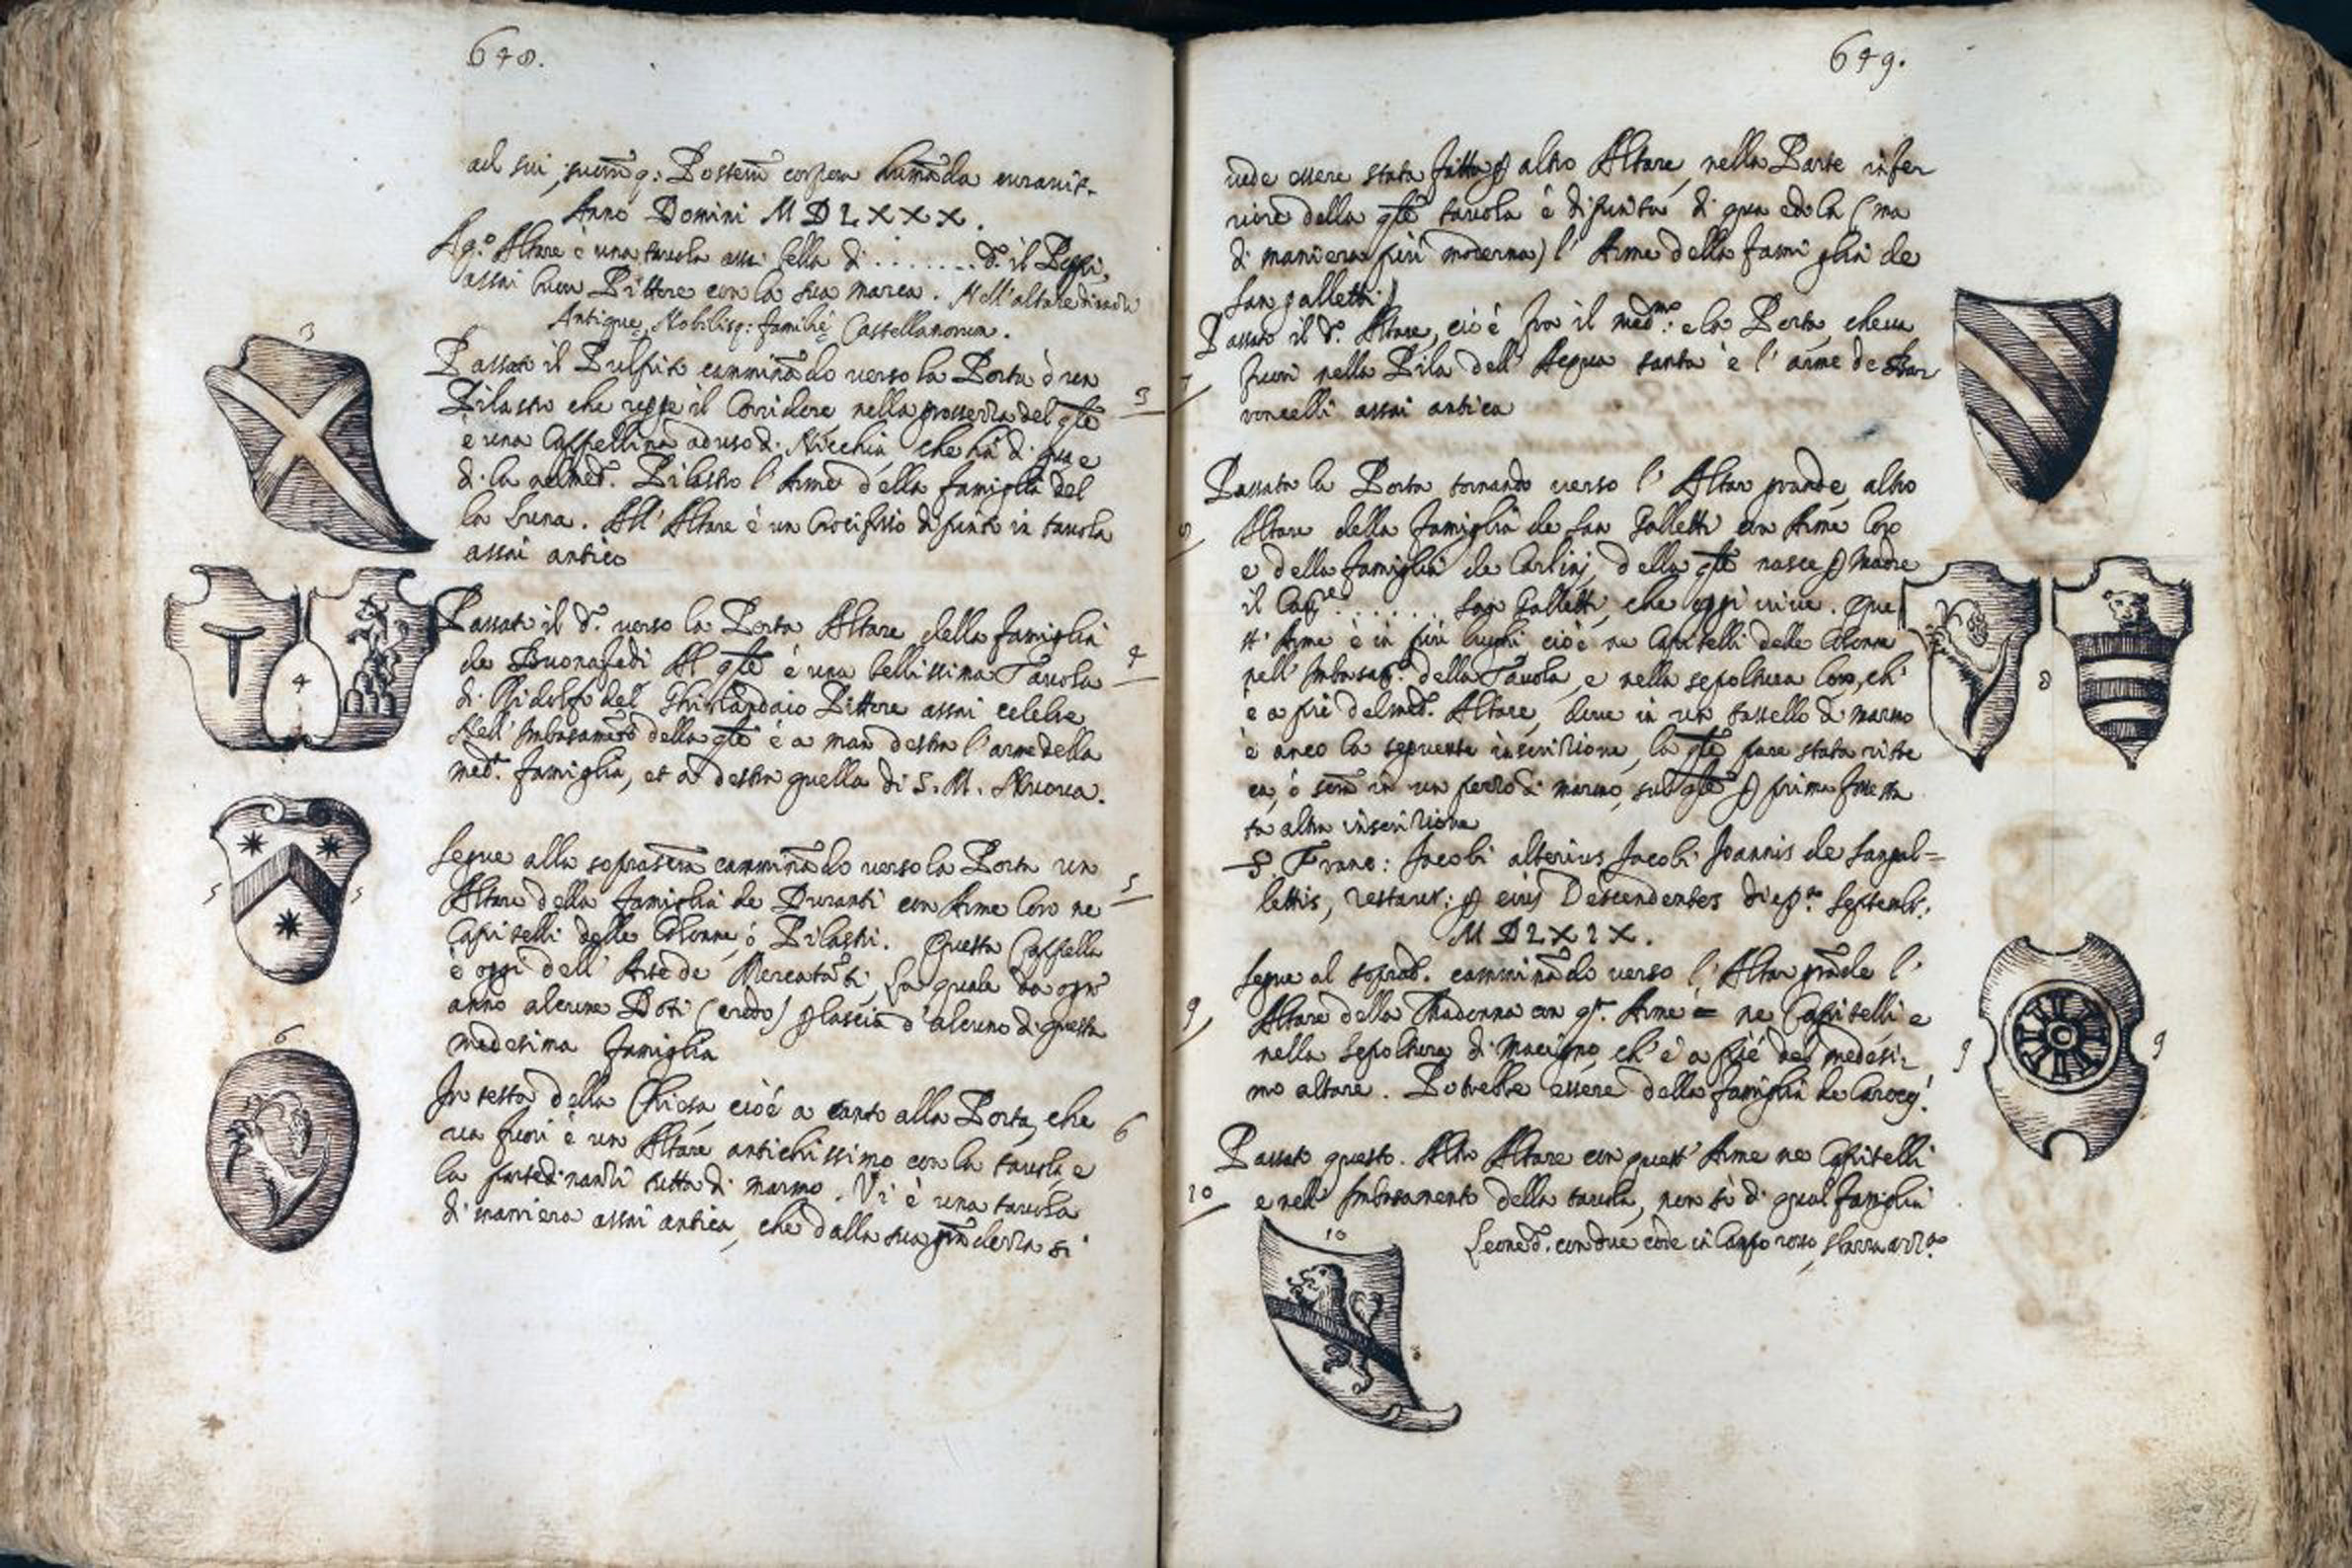 648.
ad sui, suorūq: Posterū corpora humāda curavit.
Anno Domini MDLXXX.
Altare è una tavola assai bella di . . . . . . . d.º il Poppi,
assai buon Pittore con la sua marca. Nell'altare
Antique, Nobilisq: familiê Castellanorum.
3
Passato il Pulpito camminādo verso la Porta è un
3
Pilastro che regge il Corridore nella grossezza del qle
è una Cappellina ad uso di Nicchia, che ha di qua e
di la nel med.º Pilastro l'Arme della famiglia del
la Luna. All'Altare è un Crocifisso dipinto in tavola
assai antico
Passato il d.º verso la Porta Altare della famiglia
de Buonafedi Al qle è una bellissima Tavola
4
4
di Ridolfo del Ghirlandaio Pittore assai celebre
Nell'Imbasamēto della qle è a man destra l'arme della
med.ª famiglia, et a destra quella di S. M. Nuova.
Segue alla sopra camminādo verso la Porta un
5
5
5
Altare della famiglia de Duranti con Arme loro ne
Capitelli delle Colonne, ó Pilastri. Questa Cappella
è oggi dell'Arte de Mercatāti, La quale da ogn'
anno alcune Doti (credo) p lascia d'alcuno di questa
medesima famiglia
6
In testa della Chiesa, cioè a canto alla Porta, che
6
va fuori è un Altare antichissimo con la tavola, e
la parte dinanzi tutta di marmo. Vi è una tavola
di maniera assai antica, che dalla sua grādezza si
649.
vede essere stata fatta p altro Altare, nella Parte infer
riore della qle tavola è dipinta di qua ed là (ma
di maniera più moderna) l'Arme della famiglia de
Sangalletti)
Passato il d.º Altare, cioè fra il med.mo: e la Porta, che va
7
fuori nella Pila dell'Acqua santa è l'arme de Bar
voncelli assai antica
Passata la Porta tornando verso l'Altar grande, altro
8
Altare della famiglia de San Galletti con Arme loro
e della famiglia de Carlinj, della qle nasce p Madre
il . . . . . . San Galletti, che oggi vive. Que
st'Arme è in più luoghi cioè ne Capitelli delle Colonne
8
nell'Imbasam.º della Tavola, e nella sepoltura loro, ch'
è a piè del med.º Altare, dove in un tassello di marmo
è anco la seguente inscrizione, la qle pare stata rifte
ca, ó in un pezzo di marmo, sul qle p prima fusse sta
ta altra inscrizione
S. Franc: Jacobi alterius Jacobi Joannis de Sangal=
lettis, restaur: p eius Descendentes die p.ª Septemb:
MDLXIX.
Segue al soprad.º camminādo verso l'Altar grāde l'
9
9
9
Altare della Madonna con q.st' Arme = ne Capitelli e
nella Sepoltura di Macigno, ch'è a piè del medesi:
mo altare. Potrebbe essere della famiglia de Carocci
Passato questo. Altro Altare con quest'Arme ne Capitelli
10
e nell'Imbasamento della tavola, non sò di qual famiglia
10
Leone d. con due code in Campo rosso, sbarra azz.ª